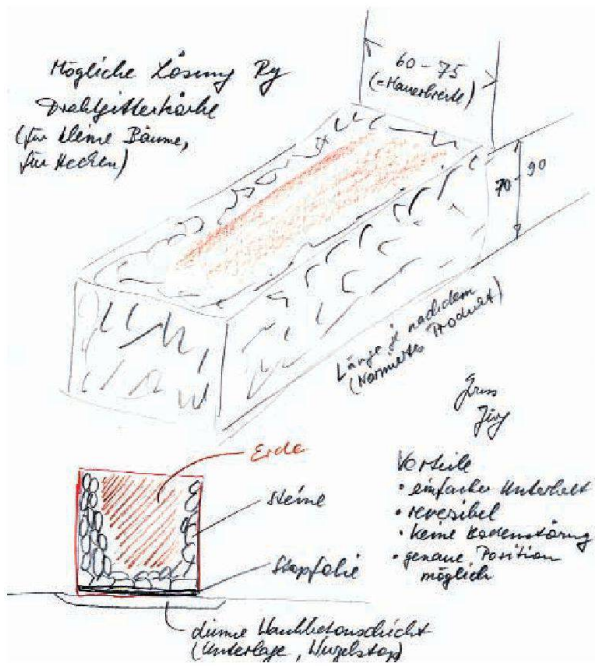 Mögliche Lösung Rg
Drahtgitterkörbe
(für kleine Bäume,
für Hecken)
60-75
(=Mauerbreite)
70-90
Länge je nachdem
(Normiertes Produkt)
Gruss
Erde
Steine
Stopfolie
dünne Magerbetonschicht
(Unterlage, Wurzelstop)
Vorteile
• einfacher Unterhalt
• reversibel
• keine Bodenstörung
• genaue Position
möglich